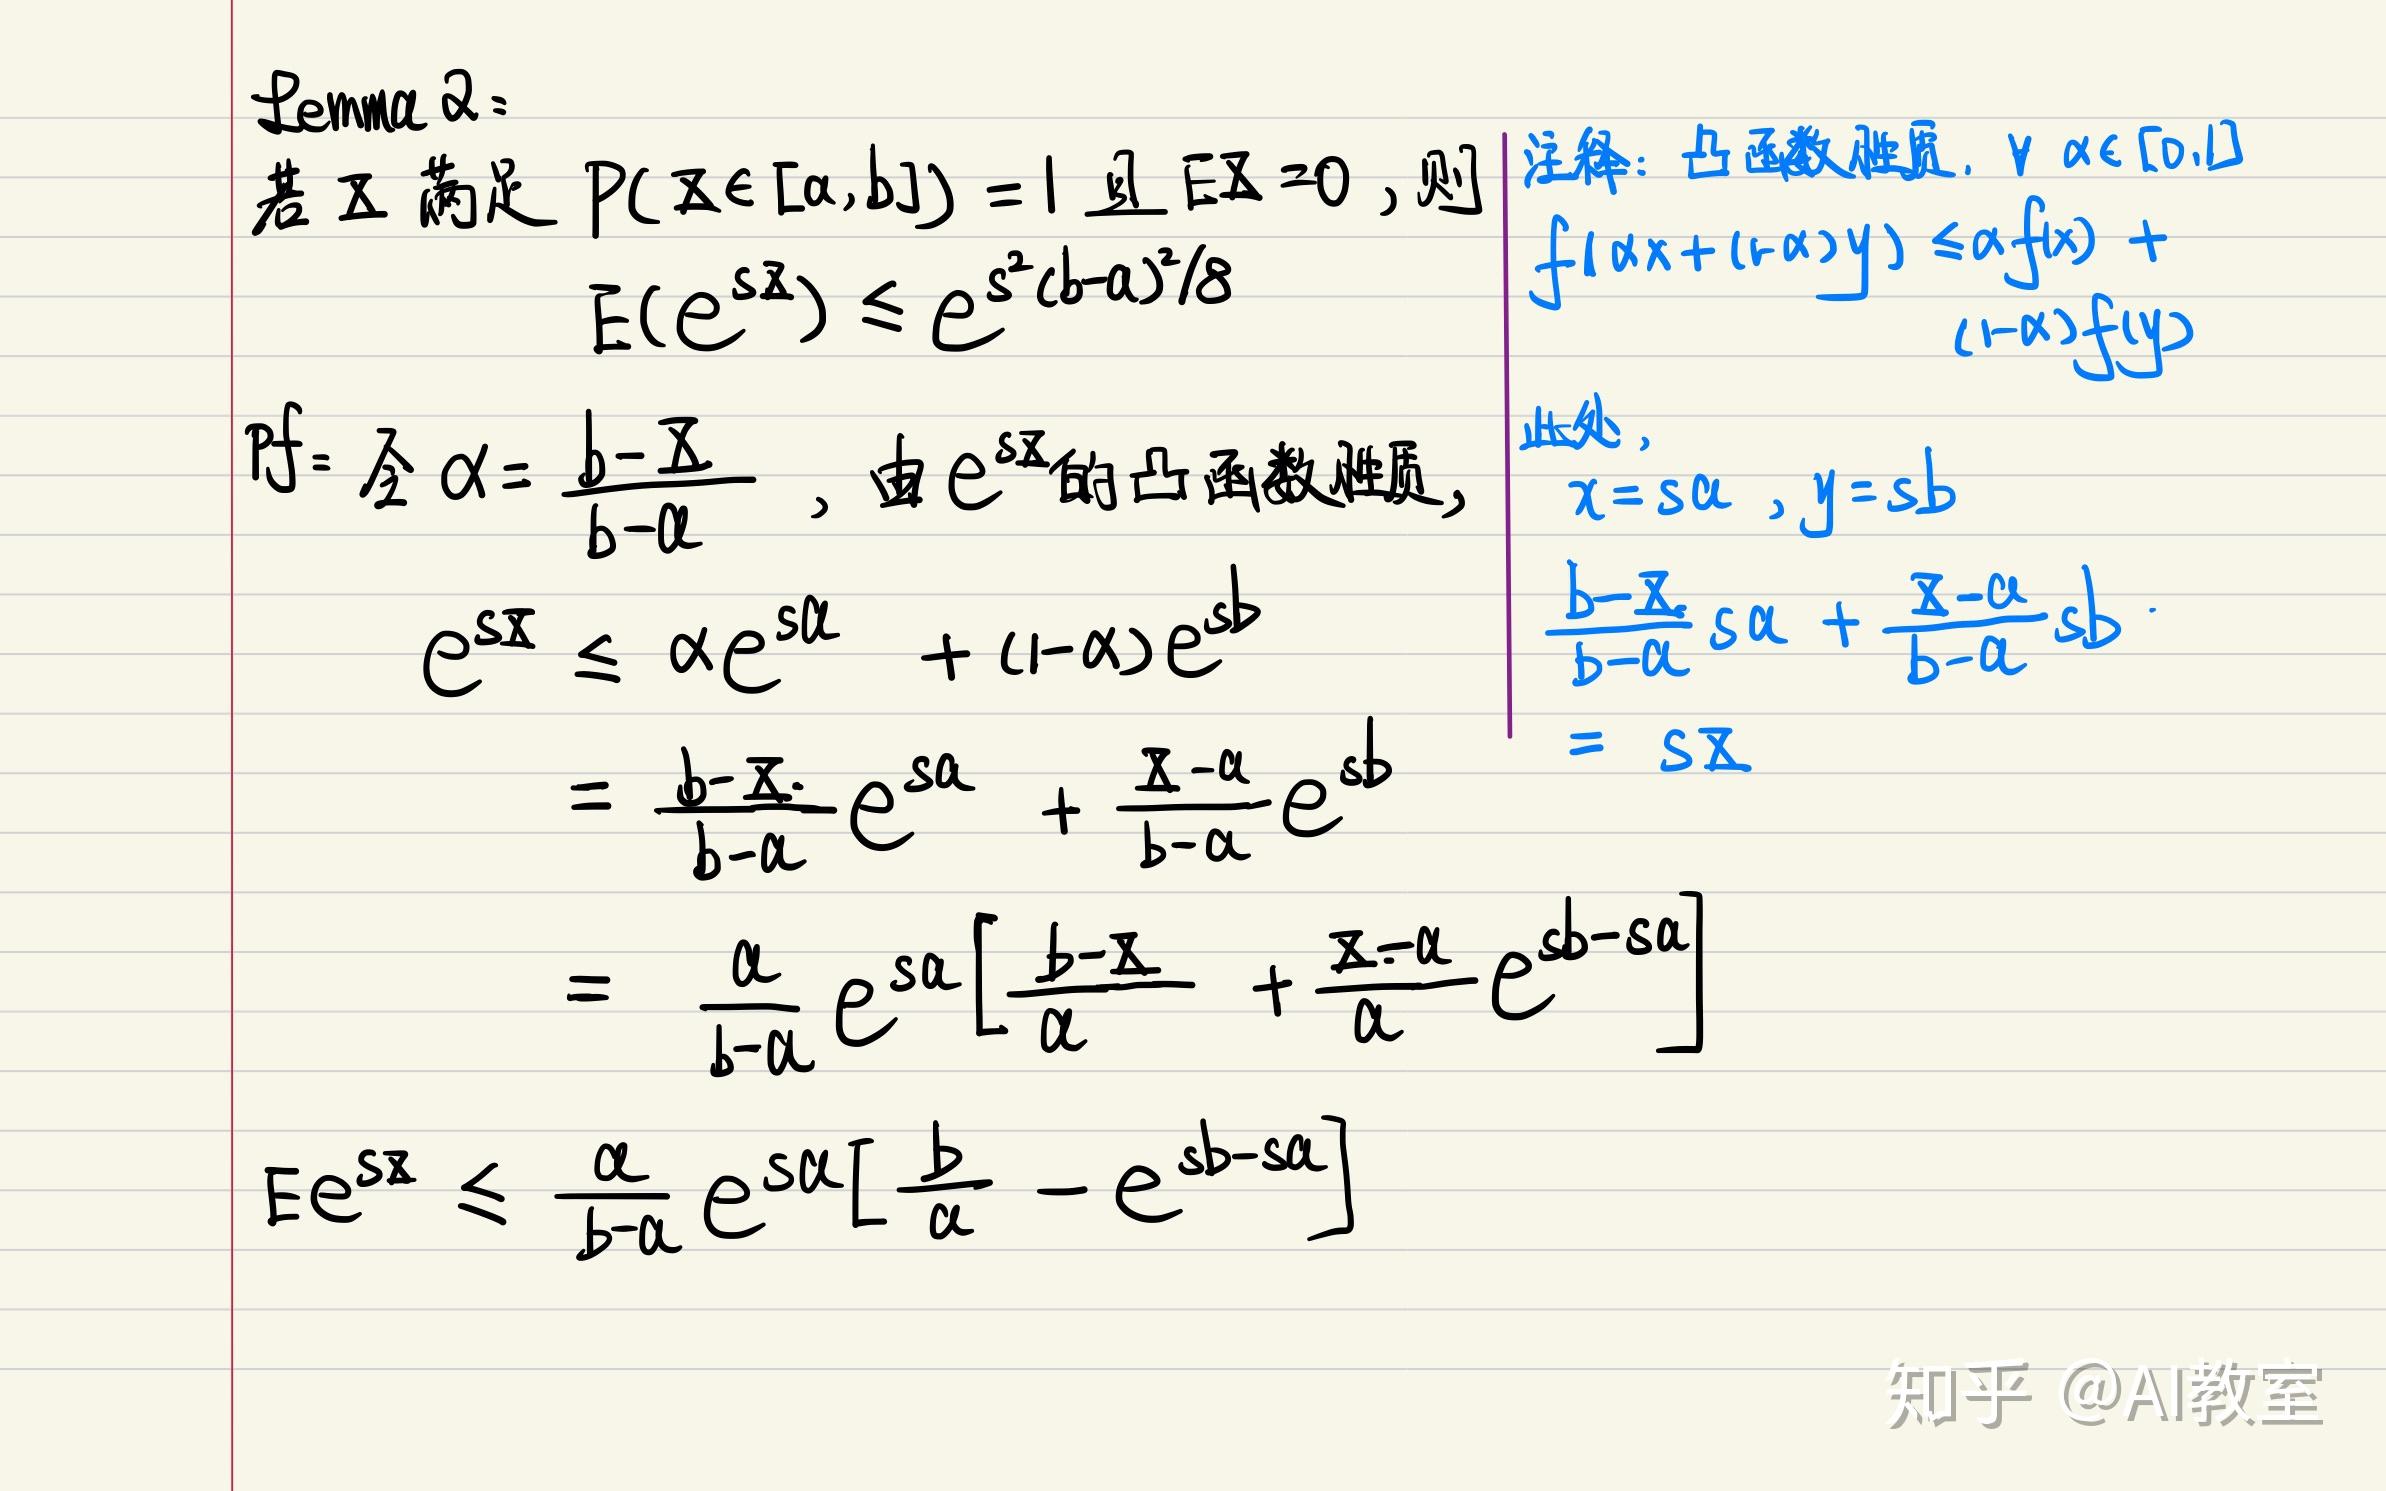 Lemma 2:
若 X 满足 P(X∈[a,b])=1 且 EX=0,则
E(e^{sX}) ≤ e^{s²(b-a)²/8}
Pf: 令 α = \frac{b-X}{b-a} , 由 e^{sX} 的凸函数性质,
e^{sX} ≤ αe^{sa} + (1-α)e^{sb}
= \frac{b-X}{b-a} e^{sa} + \frac{X-a}{b-a} e^{sb}
= \frac{a}{b-a} e^{sa} [ \frac{b-X}{a} + \frac{X-a}{a} e^{sb-sa} ]
Ee^{sX} ≤ \frac{a}{b-a} e^{sa} [ \frac{b}{a} - e^{sb-sa} ]
注释: 凸函数性质. ∀ α∈[0,1]
f(αx+(1-α)y) ≤ αf(x) +
(1-α)f(y)
此处,
x=sa , y=sb
\frac{b-X}{b-a} sa + \frac{X-a}{b-a} sb
= sX
知乎 @AI教室